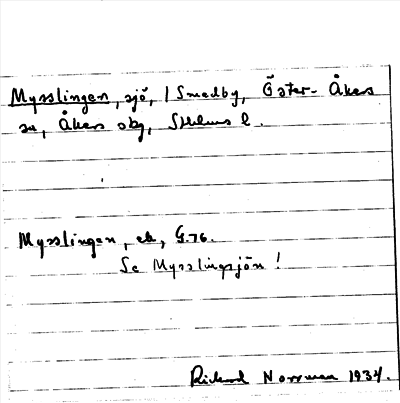 Mysslingen, sjö, i Smedby, Öster-Åkers
sn, Åkers skg, Sthlms l.
Mysslingen, ek, G.76.
Se Mysslingsjön!
Rickard Norrman 1934.